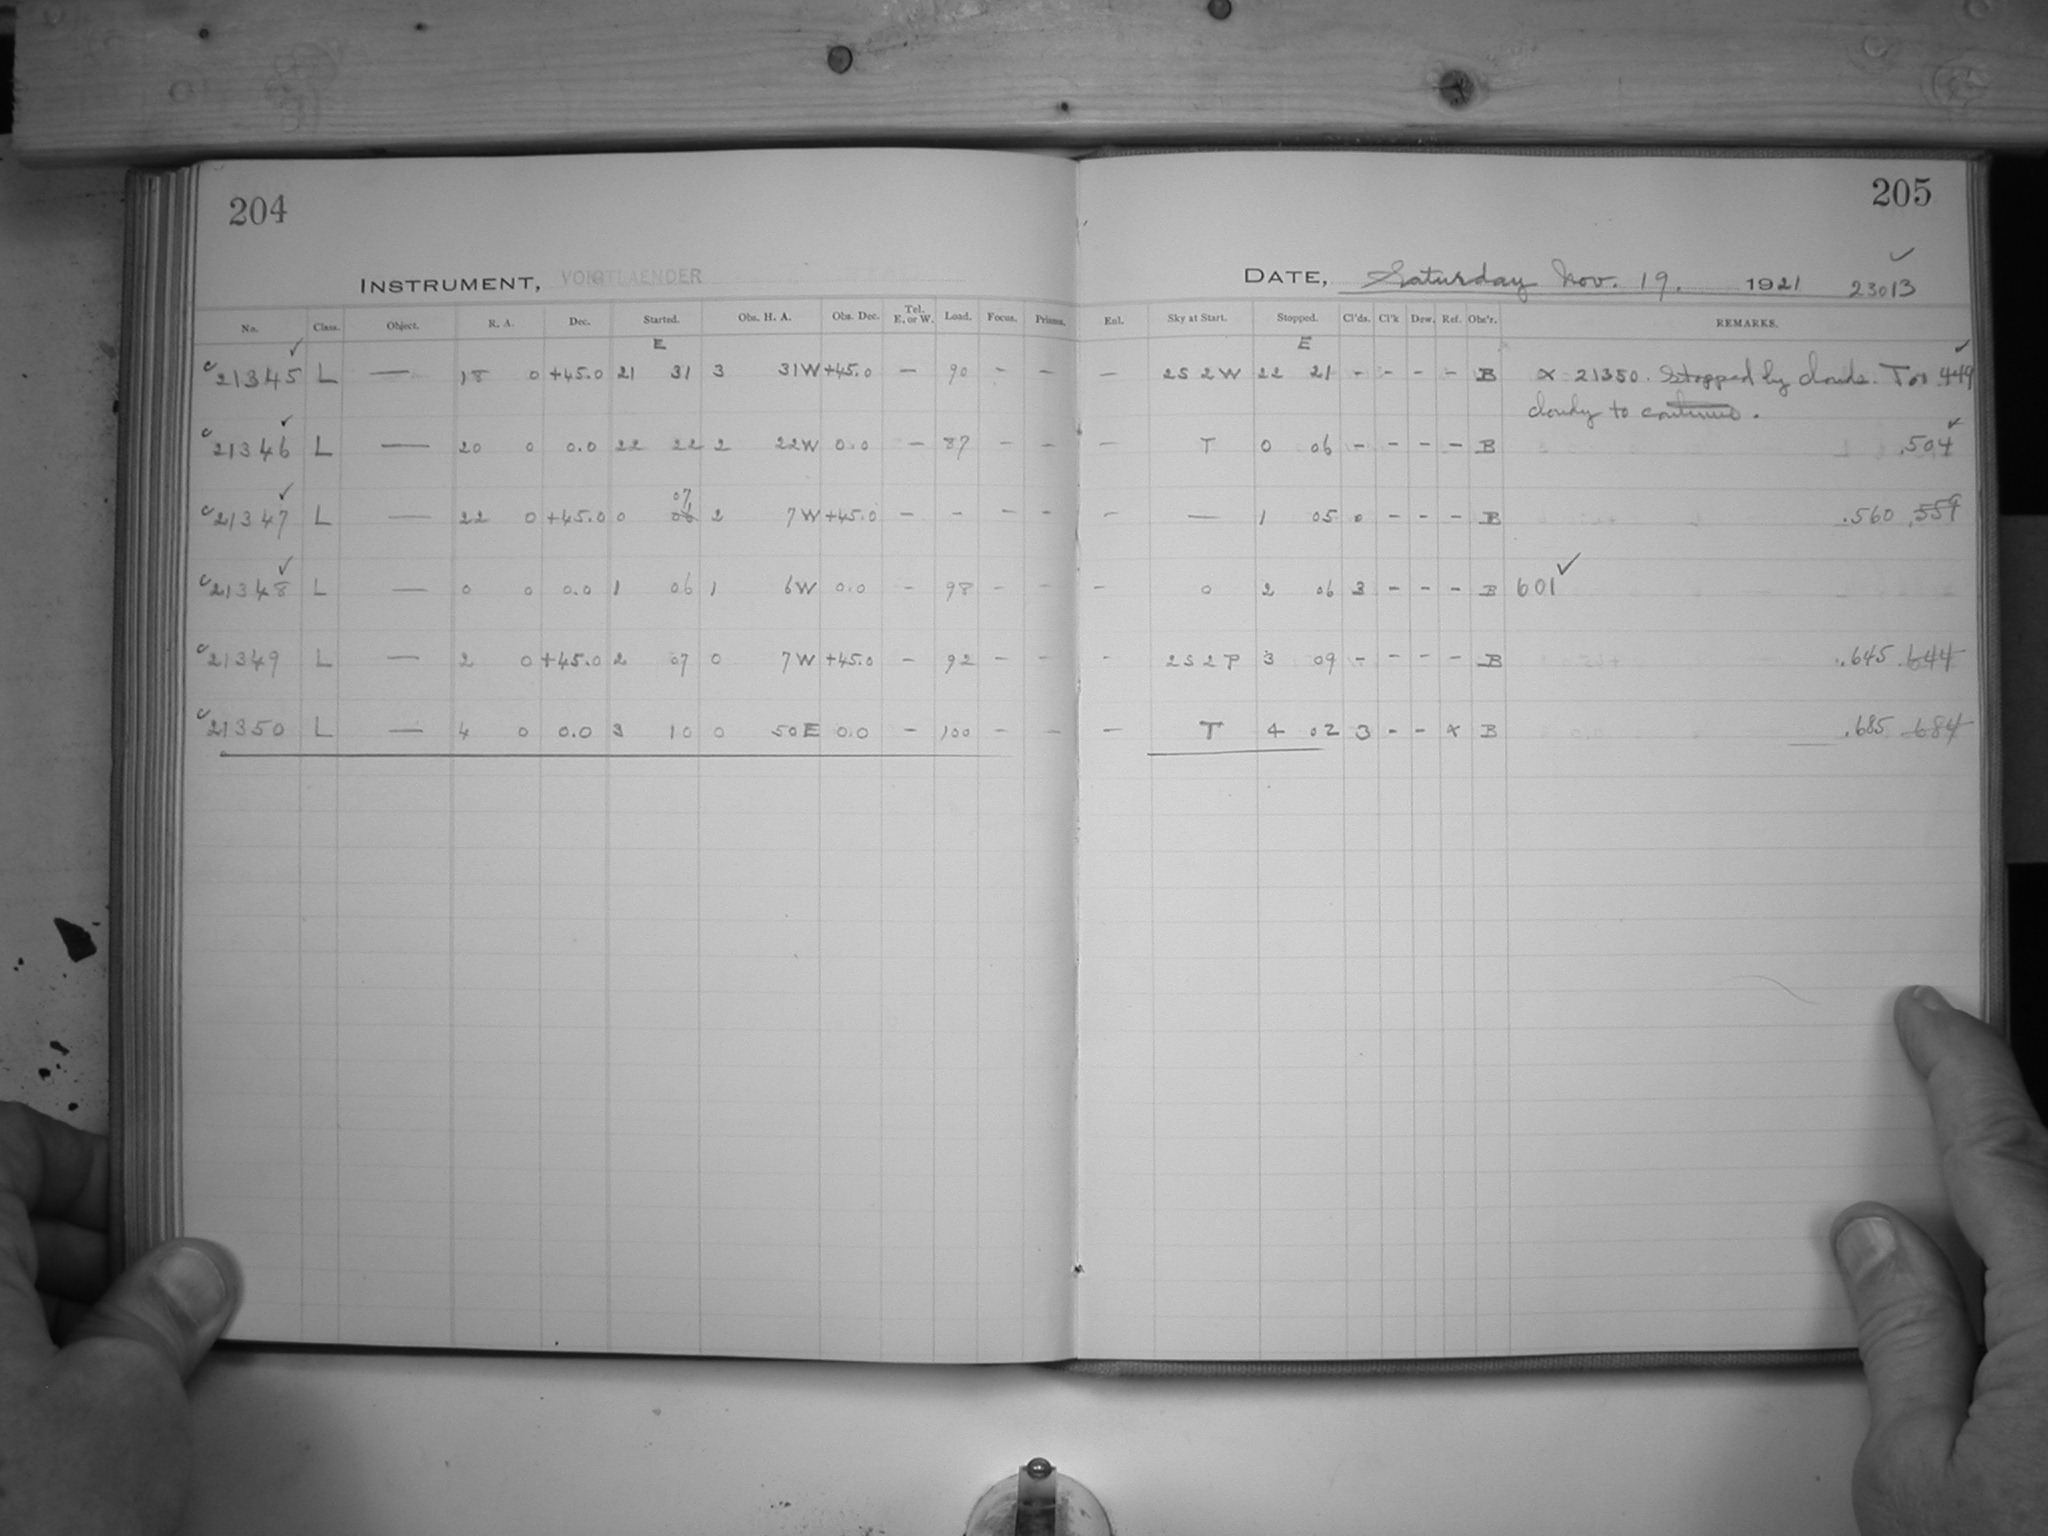 204
205
INSTRUMENT, VOIGTLAENDER
DATE, Saturday Nov. 19. 1921 23013 ✓
No. Class. Object. R. A. Dec. Started. Obs. H. A. Obs. Dec. Tel. E. or W. Load. Focus. Prisms. Enl. Sky at Start. Stopped. Cl'ds. Cl'k Dew. Ref. Obs'r. REMARKS.
E E
✓ c 21345 L — 18 0 +45.0 21 31 3 31W +45.0 — 90 - — — 2S 2W 22 21 - - - - B x 21350. Stopped by clouds. Too 449 ✓
cloudy to continue.
✓ c 21346 L — 20 0 0.0 22 22 2 22W 0.0 — 87 - — — T 0 06 - - - - B .504 ✓
✓ c 21347 L — 22 0 +45.0 0 06 07 2 7W +45.0 — - - — — — 1 05 0 - - - B .560 .559
✓ c 21348 L — 0 0 0.0 1 06 1 6W 0.0 - 98 - — - 0 2 06 3 - - - B 601 ✓
c 21349 L — 2 0 +45.0 2 07 0 7W +45.0 - 92 - — - 2S 2P 3 09 - - - - B .645 .644
c 21350 L — 4 0 0.0 3 10 0 50E 0.0 - 100 - — — T 4 02 3 - - x B .685 .684